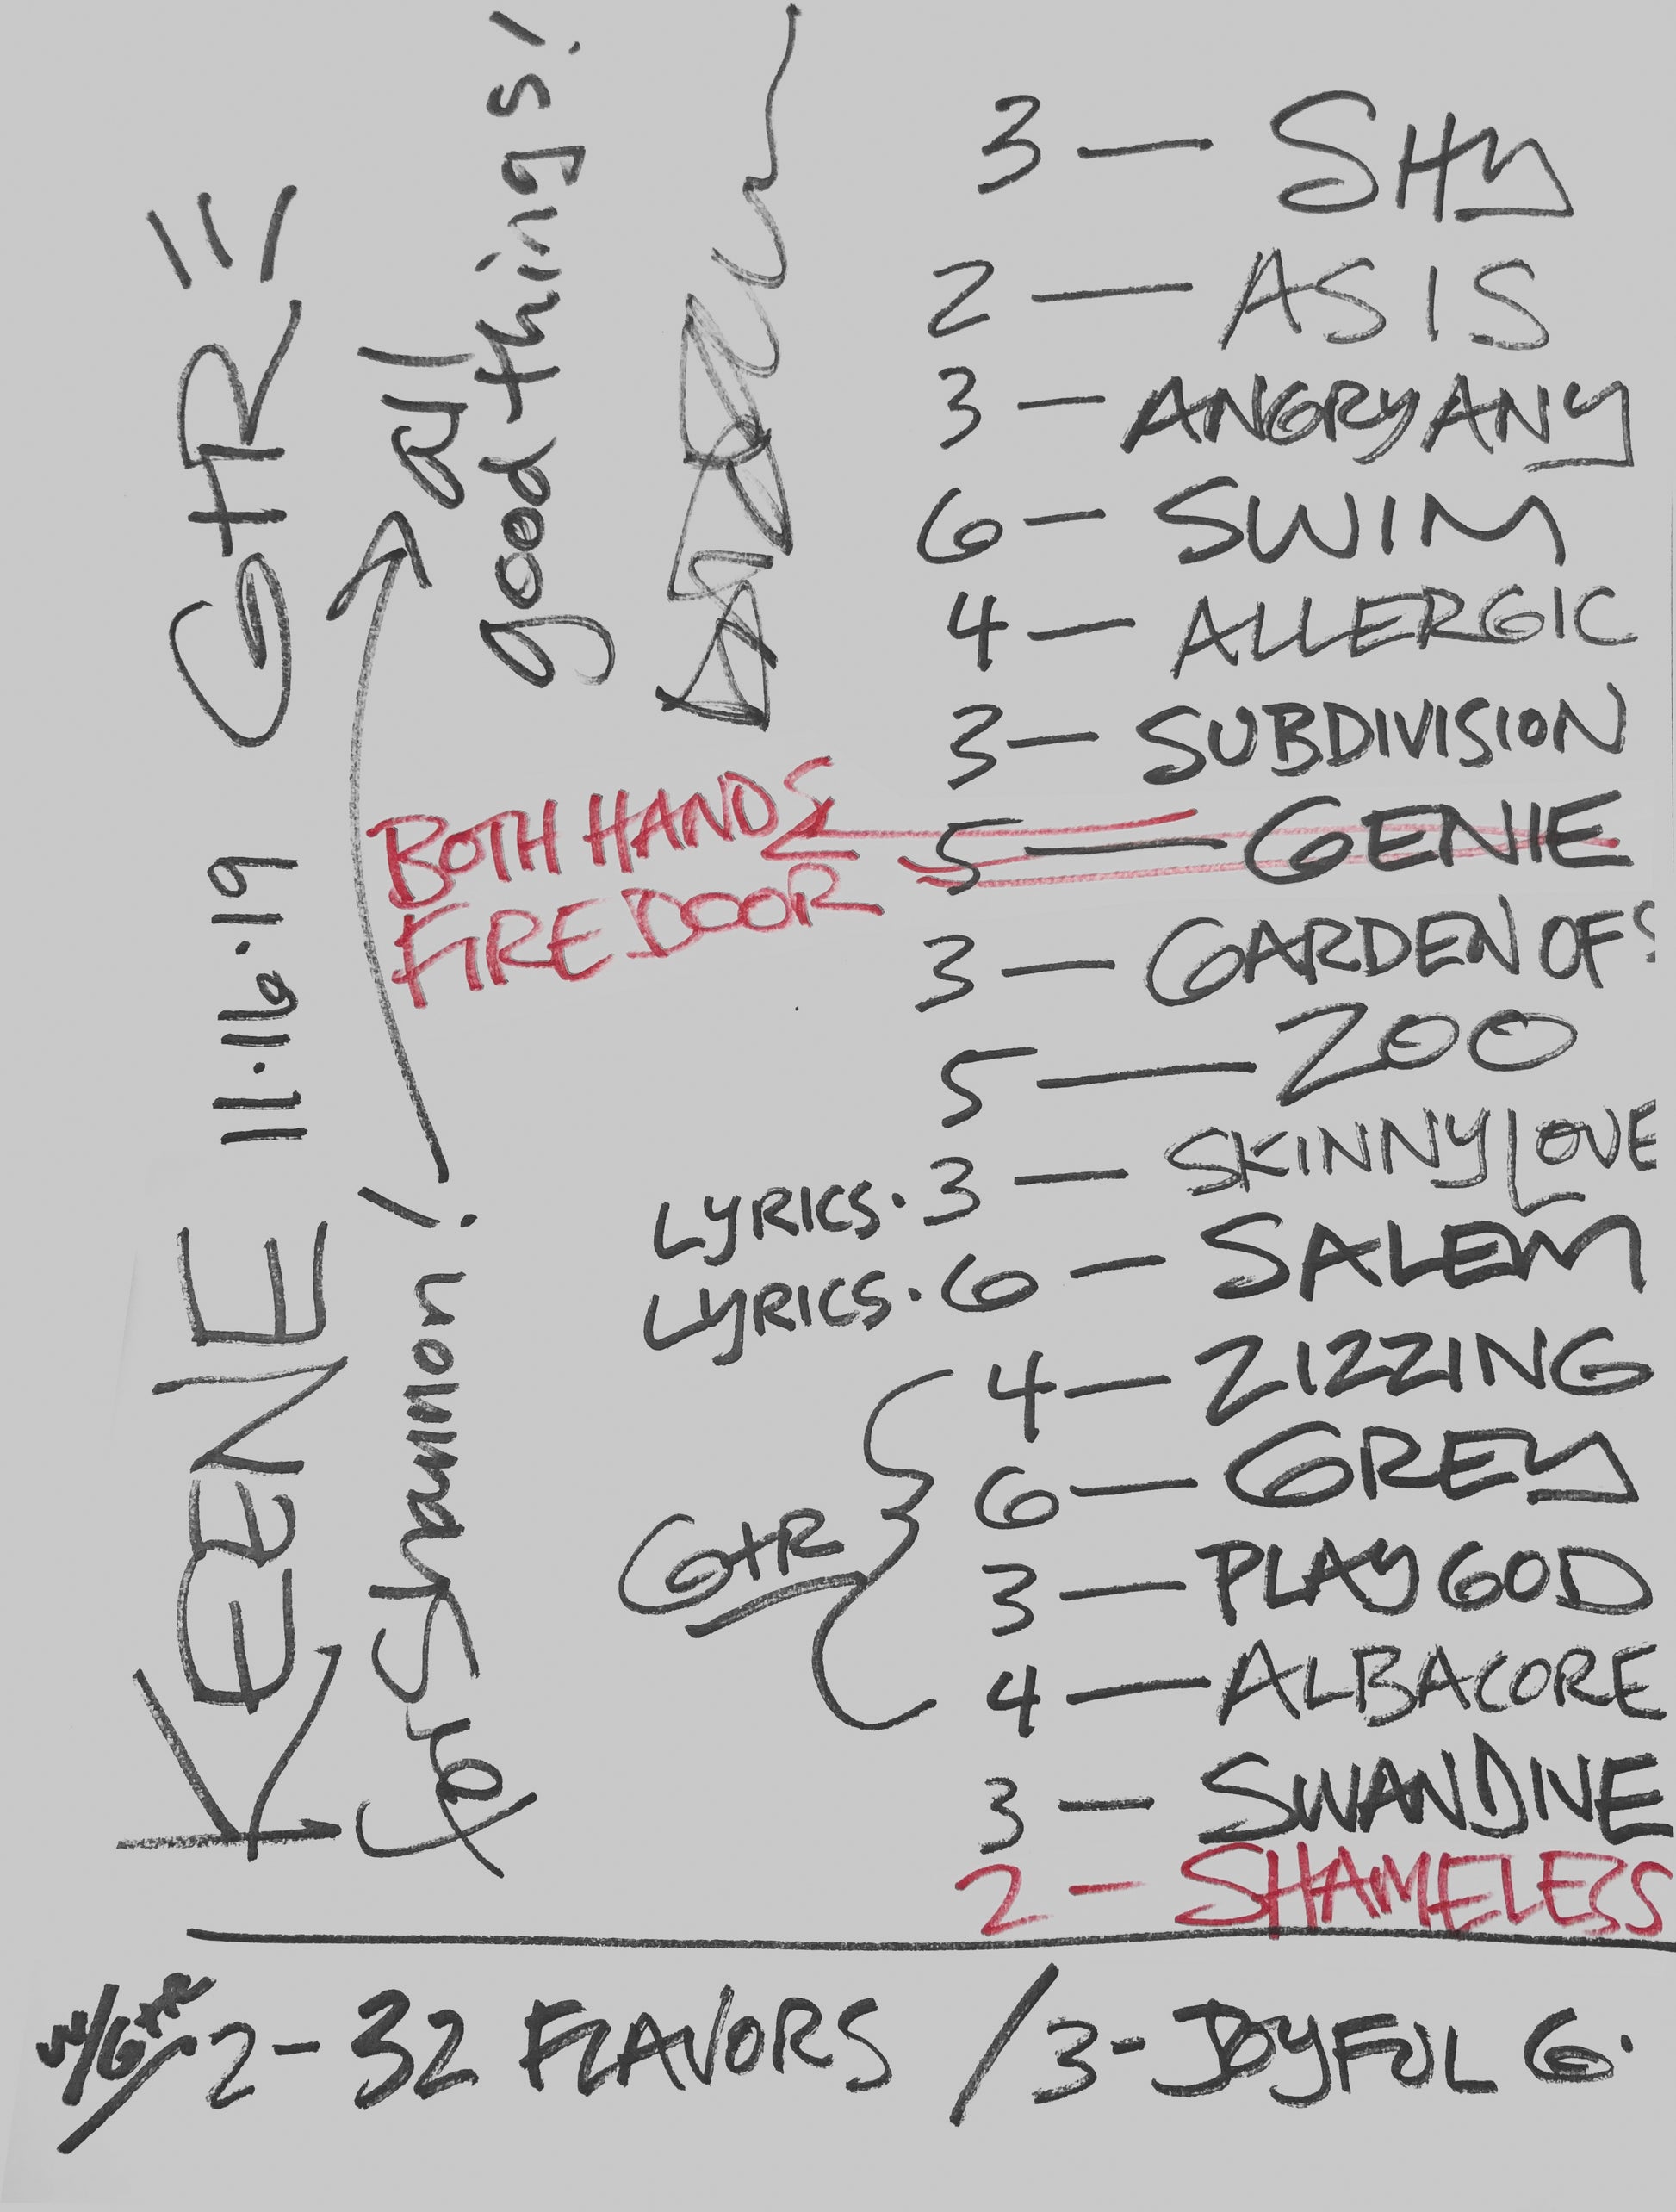 KEENE 11·16·19 GtR
for Shannon! all
good things!
3 — SHY
2 — AS IS
3 — ANGRY ANY
6 — SWIM
4 — ALLERGIC
3 — SUBDIVISION
5 — GENIE
BOTH HANDS
FIRE DOOR
3 — GARDEN OF
5 — ZOO
LYRICS · 3 — SKINNY LOVE
LYRICS · 6 — SALEM
4 — ZIZZING
6 — GREY
GtR
3 — PLAY GOD
4 — ALBACORE
3 — SWANDIVE
2 — SHAMELESS
w/Gtr 2 - 32 FLAVORS / 3 - JOYFUL G.